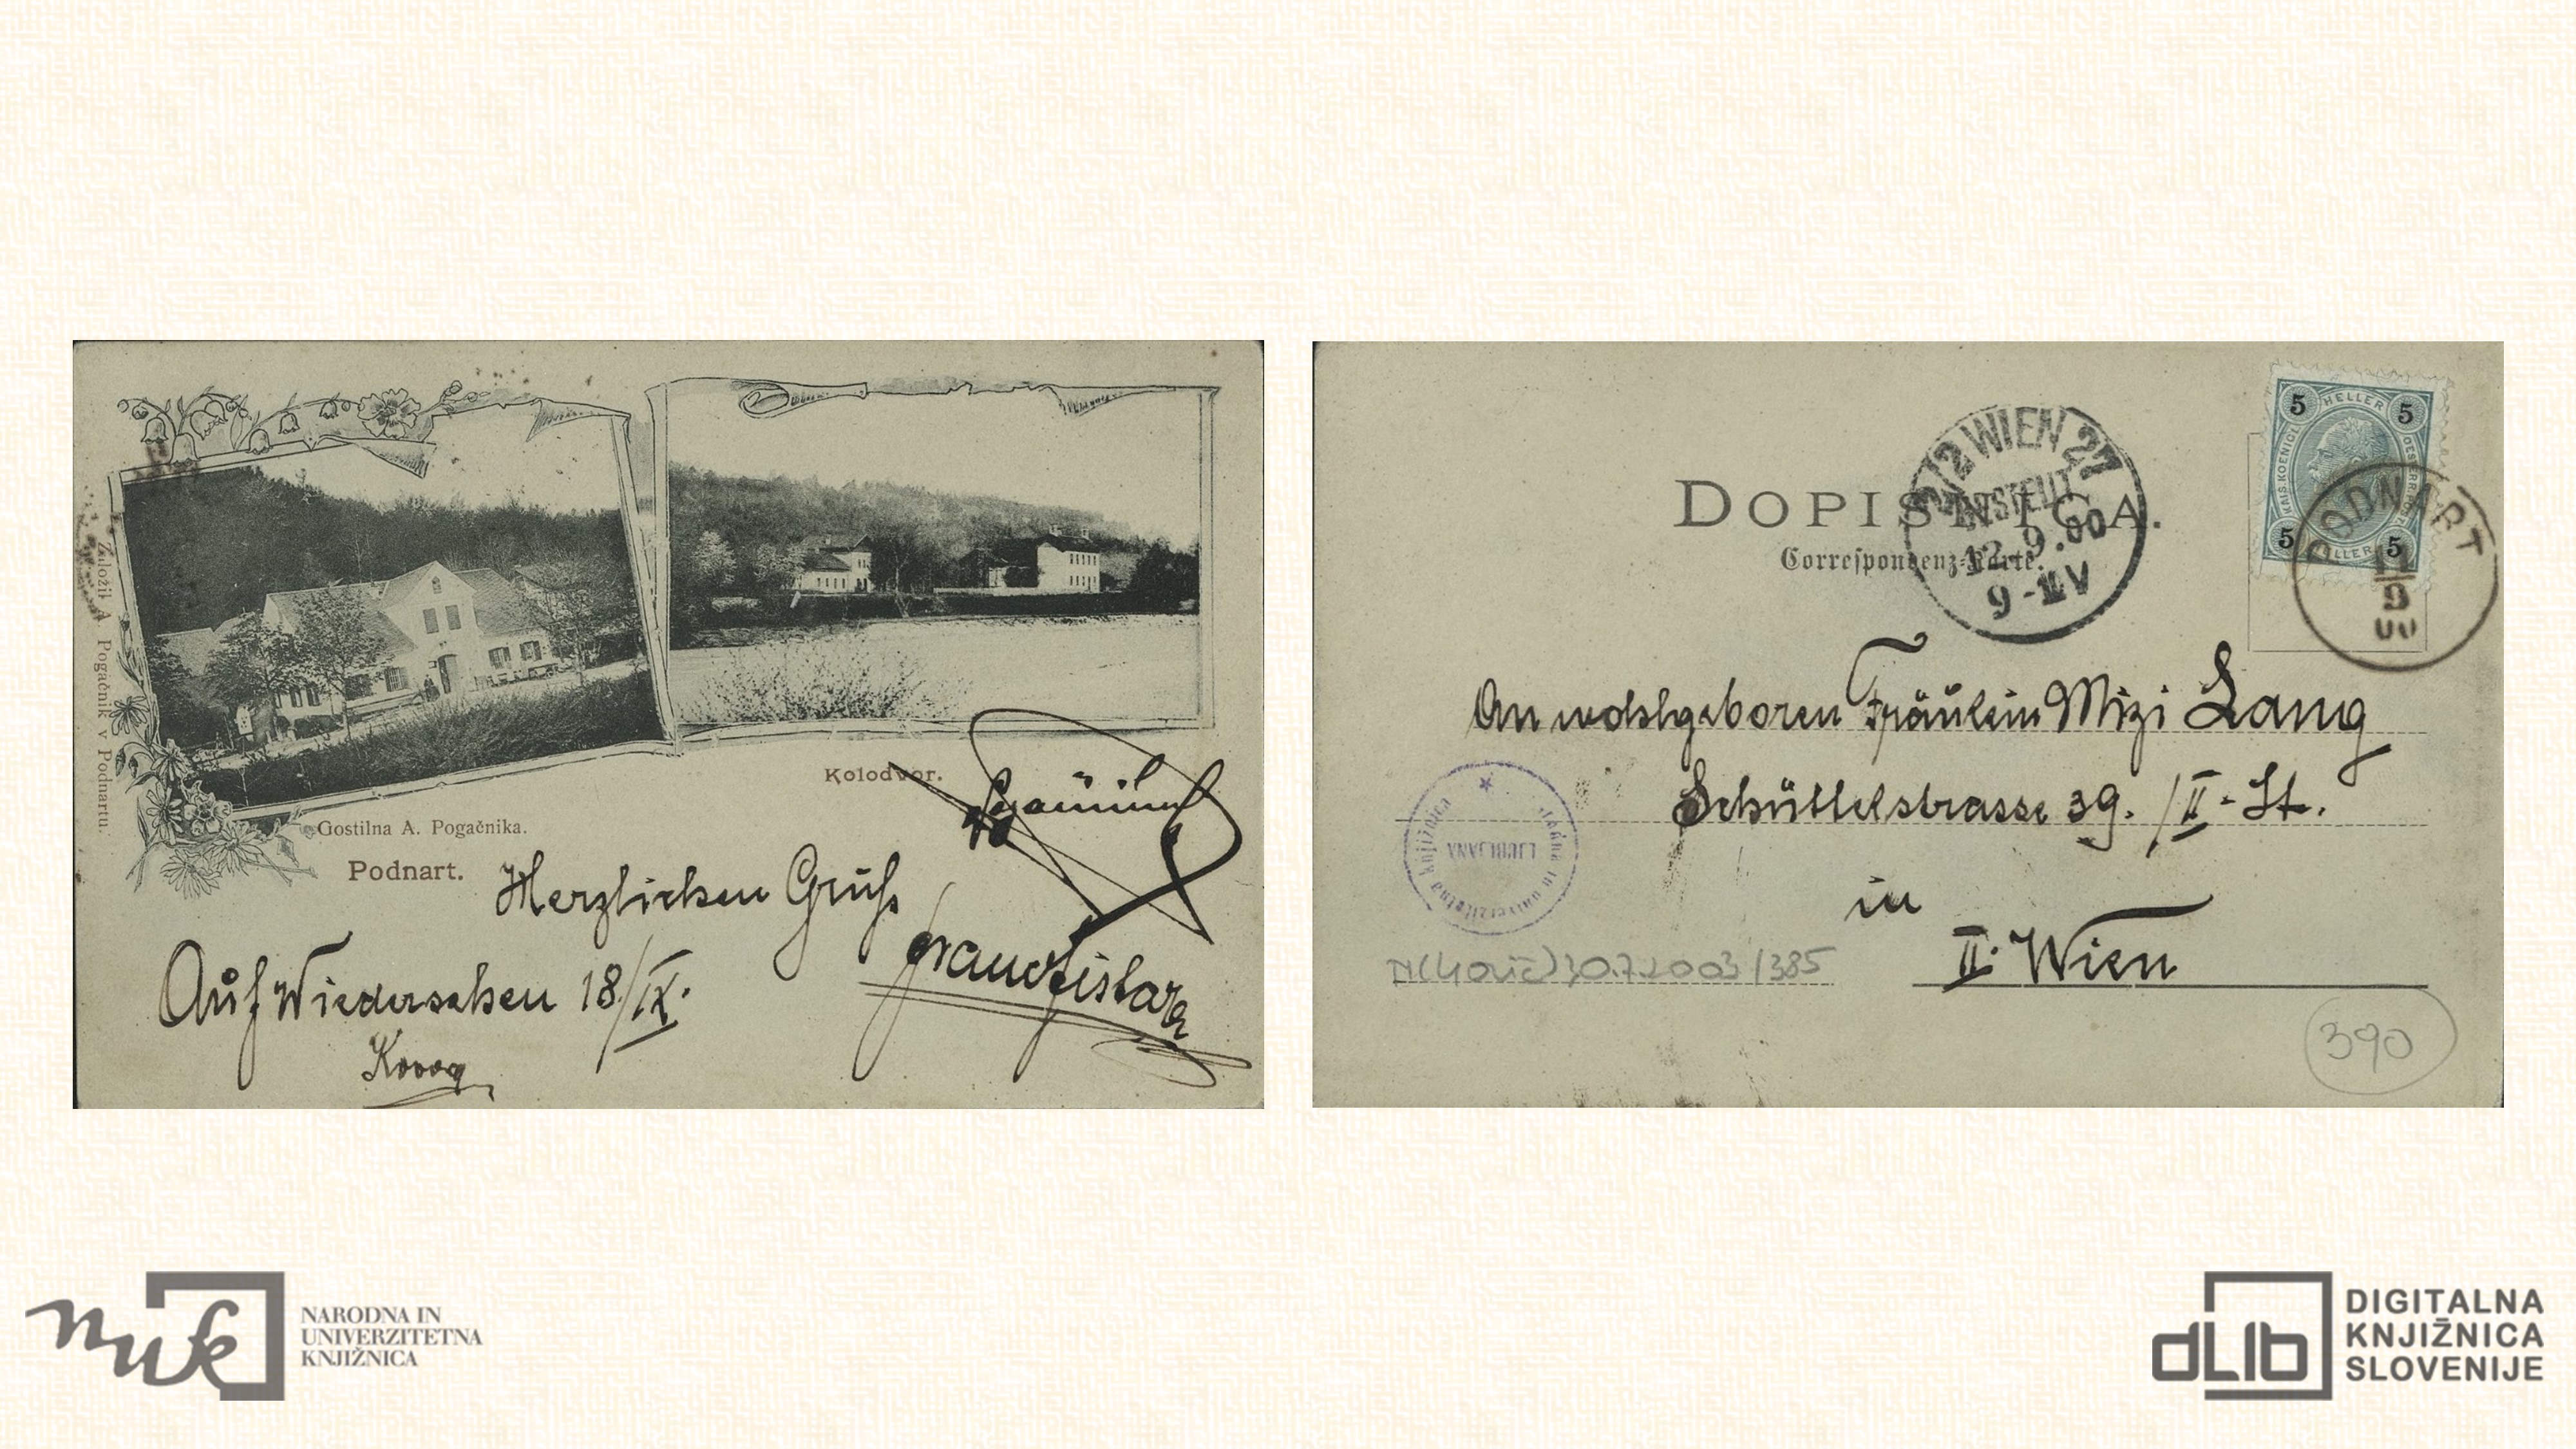 Založil A. Pogačnik v Podnartu.
Kolodvor.
Gostilna A. Pogačnika.
Podnart.
Herzlichen Gruß
Auf Wiedersehen 18/IX.
2/2 WIEN 27
BESTELLT
12.9.00
9-11V
DOPISNICA.
Correspondenz-Karte.
5 HELLER 5
KAIS. KOENIGL. OESTERR. POST
5 HELLER 5
PODNART
11
9
00
An wohlgeboren Fräulein Mizi Lang
Schüttelstrasse 39. /II. St.
in
II. Wien
Narodna in univerzitetna knjižnica
LJUBLJANA
30.7.2003/385
390
nuk
NARODNA IN
UNIVERZITETNA
KNJIŽNICA
dLib
DIGITALNA
KNJIŽNICA
SLOVENIJE